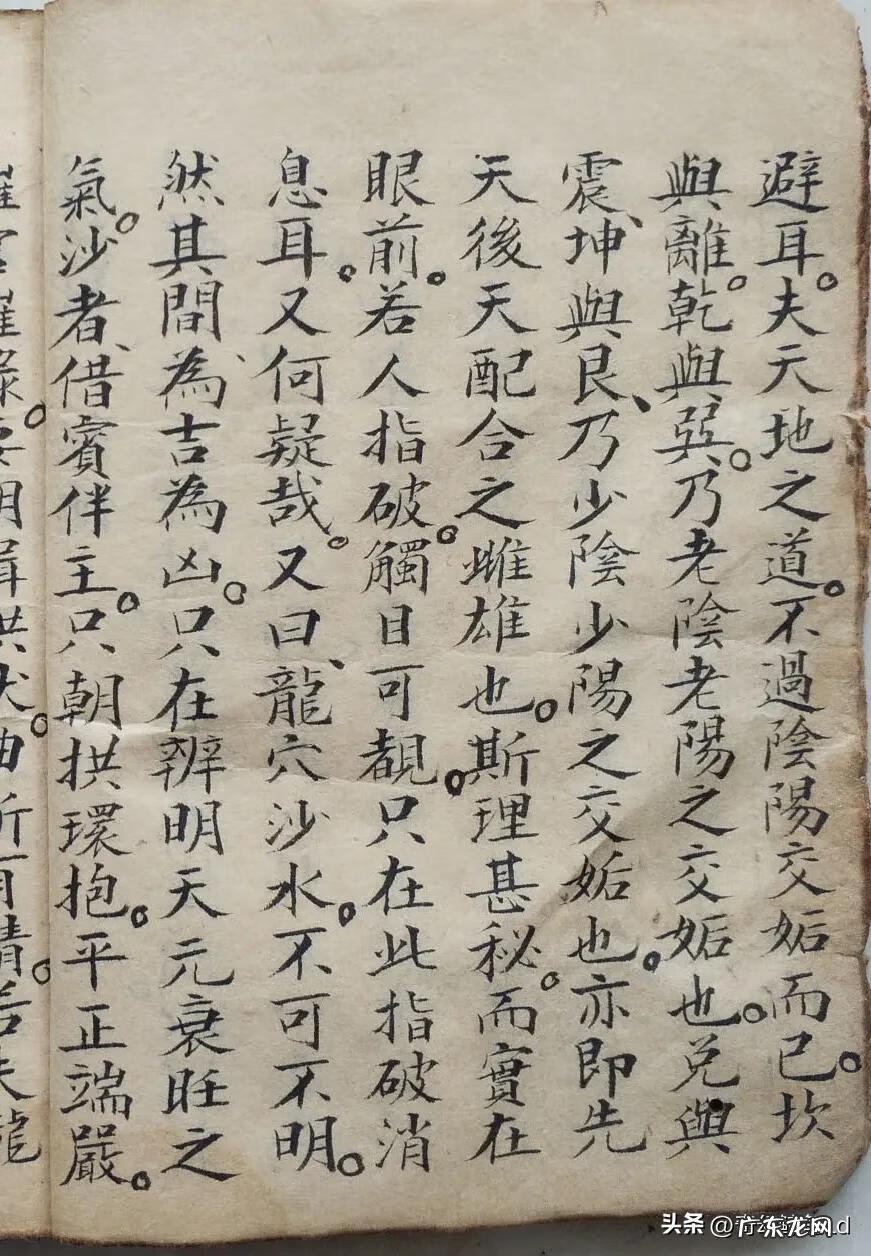 避耳。夫天地之道。不過陰陽交姤而已。坎
與離。乾與巽。乃老陰老陽之交姤也。兌與
震、坤與艮、乃少陰少陽之交姤也。亦即先
天後天配合之雌雄也。斯理甚秘。而實在
眼前。若人指破。觸目可覩。只在此指破消
息耳。又何疑哉。又曰、龍穴沙水。不可不明。
然其間、為吉為凶。只在辨明天元衰旺之
氣。沙者、借賓伴主。只朝拱環抱。平正端嚴。
头条 @广东龙网